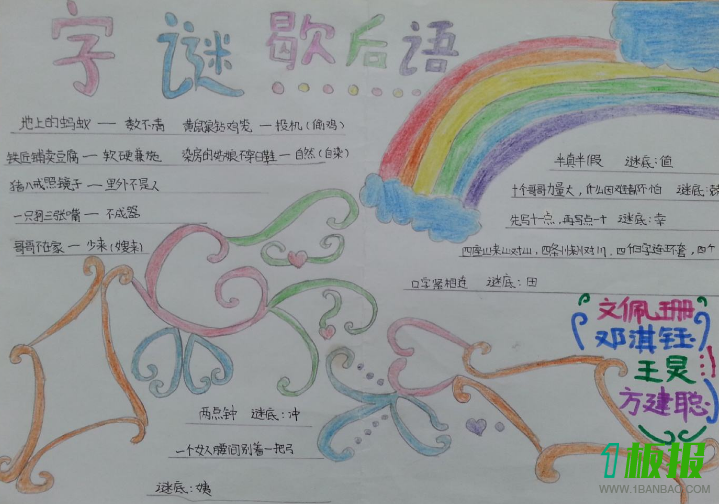 字谜歇后语
地上的蚂蚁 — 数不清 黄鼠狼钻鸡笼 — 投机(偷鸡)
铁匠铺卖豆腐 — 软硬兼施 染房的姑娘不穿白鞋 — 自然(自染)
猪八戒照镜子 — 里外不是人
一只狗三张嘴 — 不成器
哥哥不在家 — 少来(嫂来)
半真半假 谜底:值
十个哥哥力量大,什么困难都不怕 谜底:兢
先写十一点,再写点一十 谜底:幸
四座山山对山,四条川川对川,四个口字连环套,四个
口字紧相连 谜底:田
两点钟 谜底:冲
一个女人腰间别着一把弓
谜底:姨
文佩珊
邓淇钰
王灵
方建聪
1板报
WWW.1BANBAO.COM